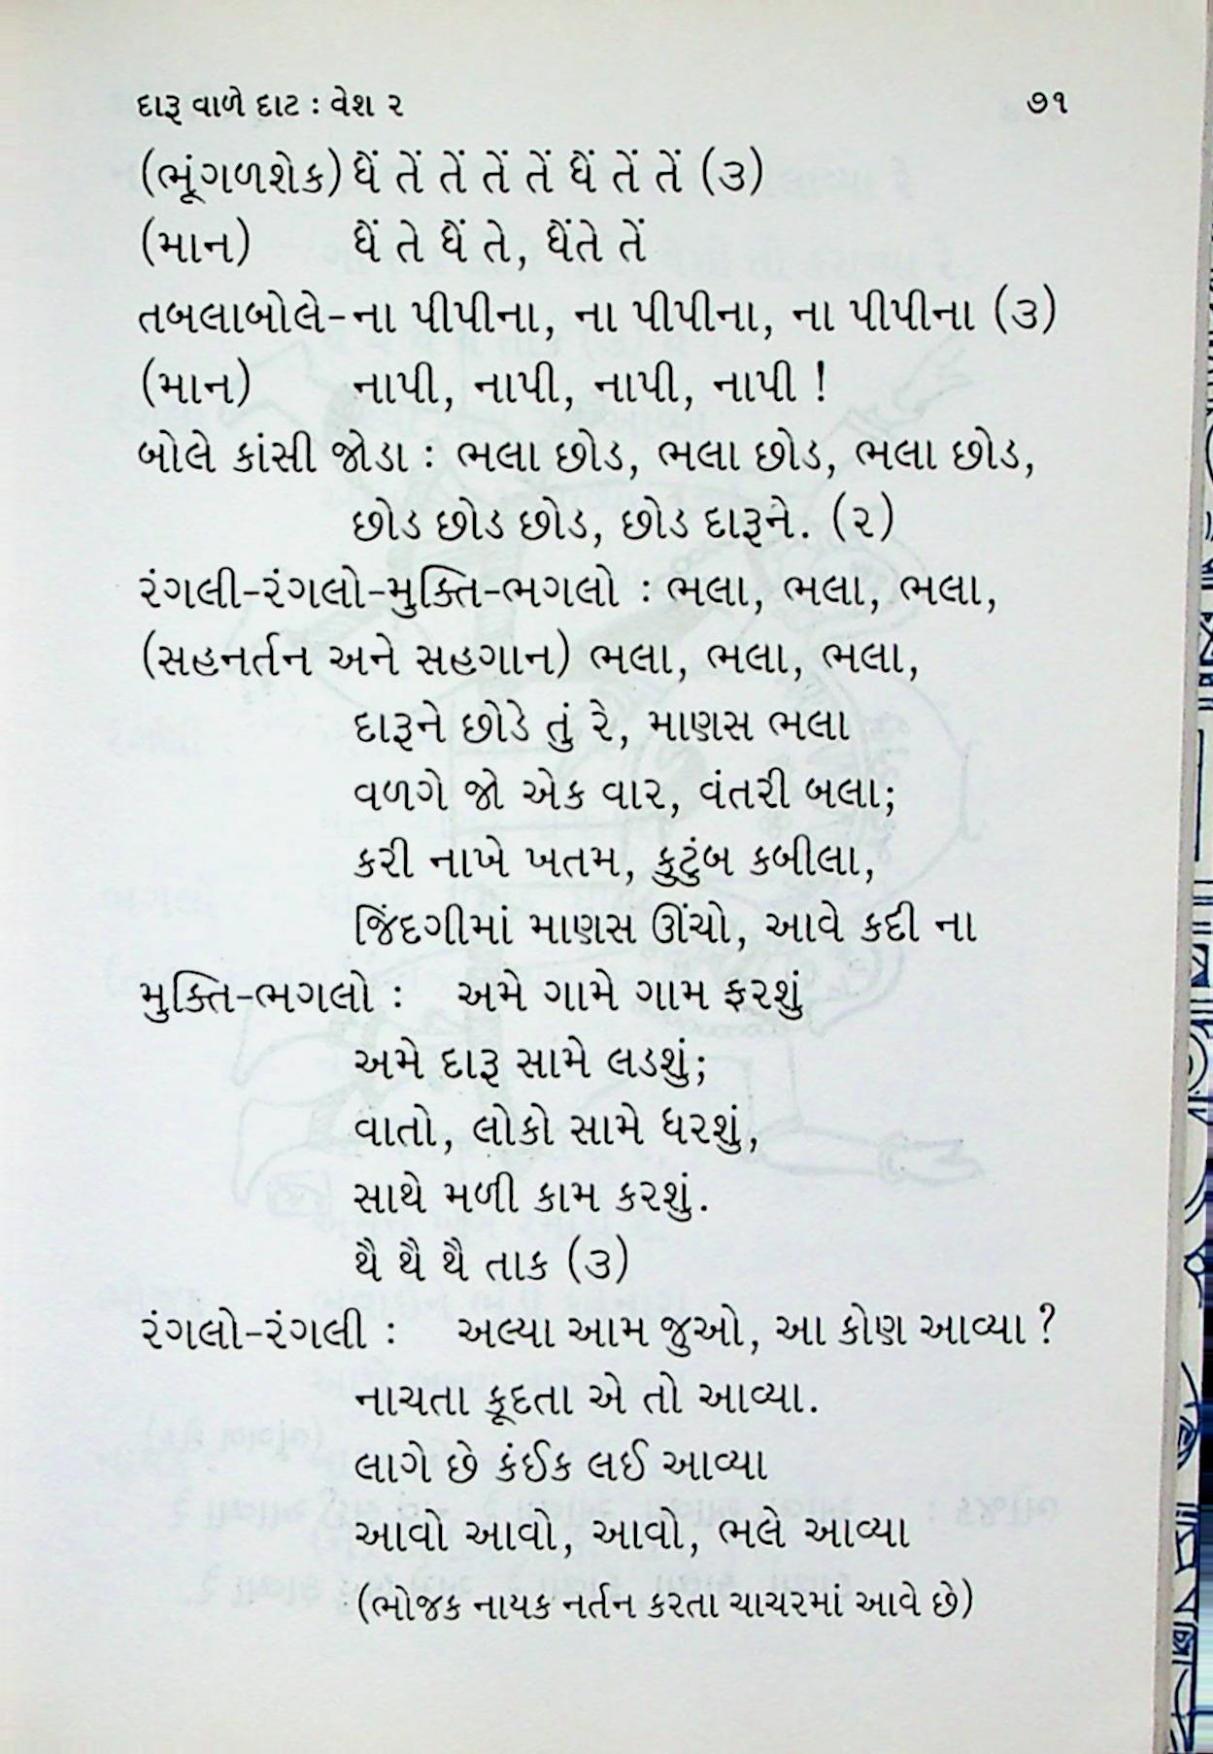 દારૂ વાળે દાટ : વેશ ૨ ૭૧
(ભૂંગળશેક) ધેં તેં તેં તેં તેં ધેં તેં તેં (૩)
(માન) ધેં તે ધેં તે, ધેંતે તેં
તબલાબોલે-ના પીપીના, ના પીપીના, ના પીપીના (૩)
(માન) નાપી, નાપી, નાપી, નાપી !
બોલે કાંસી જોડા : ભલા છોડ, ભલા છોડ, ભલા છોડ,
છોડ છોડ છોડ, છોડ દારૂને. (૨)
રંગલી-રંગલો-મુક્તિ-ભગલો : ભલા, ભલા, ભલા,
(સહનર્તન અને સહગાન) ભલા, ભલા, ભલા,
દારૂને છોડે તું રે, માણસ ભલા
વળગે જો એક વાર, વંતરી બલા;
કરી નાખે ખતમ, કુટુંબ કબીલા,
જિંદગીમાં માણસ ઊંચો, આવે કદી ના
મુક્તિ-ભગલો : અમે ગામે ગામ ફરશું
અમે દારૂ સામે લડશું;
વાતો, લોકો સામે ધરશું,
સાથે મળી કામ કરશું.
થૈ થૈ થૈ તાક (૩)
રંગલો-રંગલી : અલ્યા આમ જુઓ, આ કોણ આવ્યા ?
નાચતા કૂદતા એ તો આવ્યા.
લાગે છે કંઈક લઈ આવ્યા
આવો આવો, આવો, ભલે આવ્યા
(ભોજક નાયક નર્તન કરતા ચાચરમાં આવે છે)